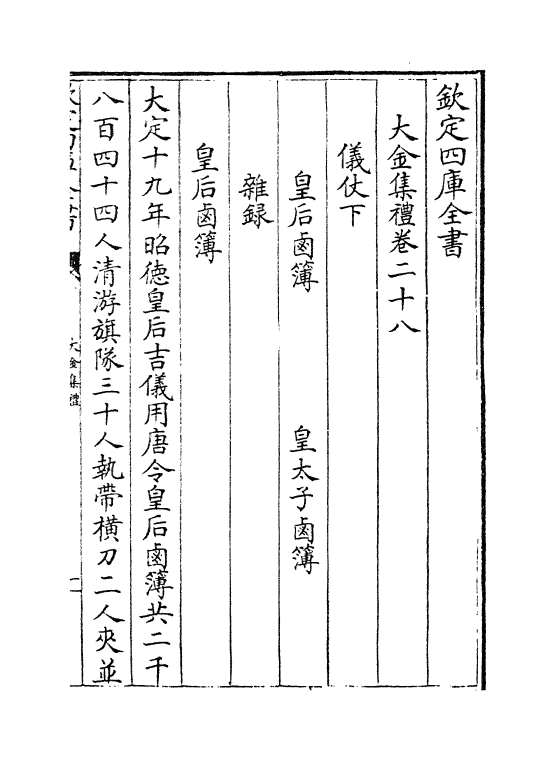 欽定四庫全書
大金集禮卷二十八
儀仗下
皇后鹵簿　皇太子鹵簿
雜録
皇后鹵簿
大定十九年昭徳皇后吉儀用唐令皇后鹵簿共二千
八百四十四人清游旗隊三十人執帶橫刀二人夾並
大金集禮